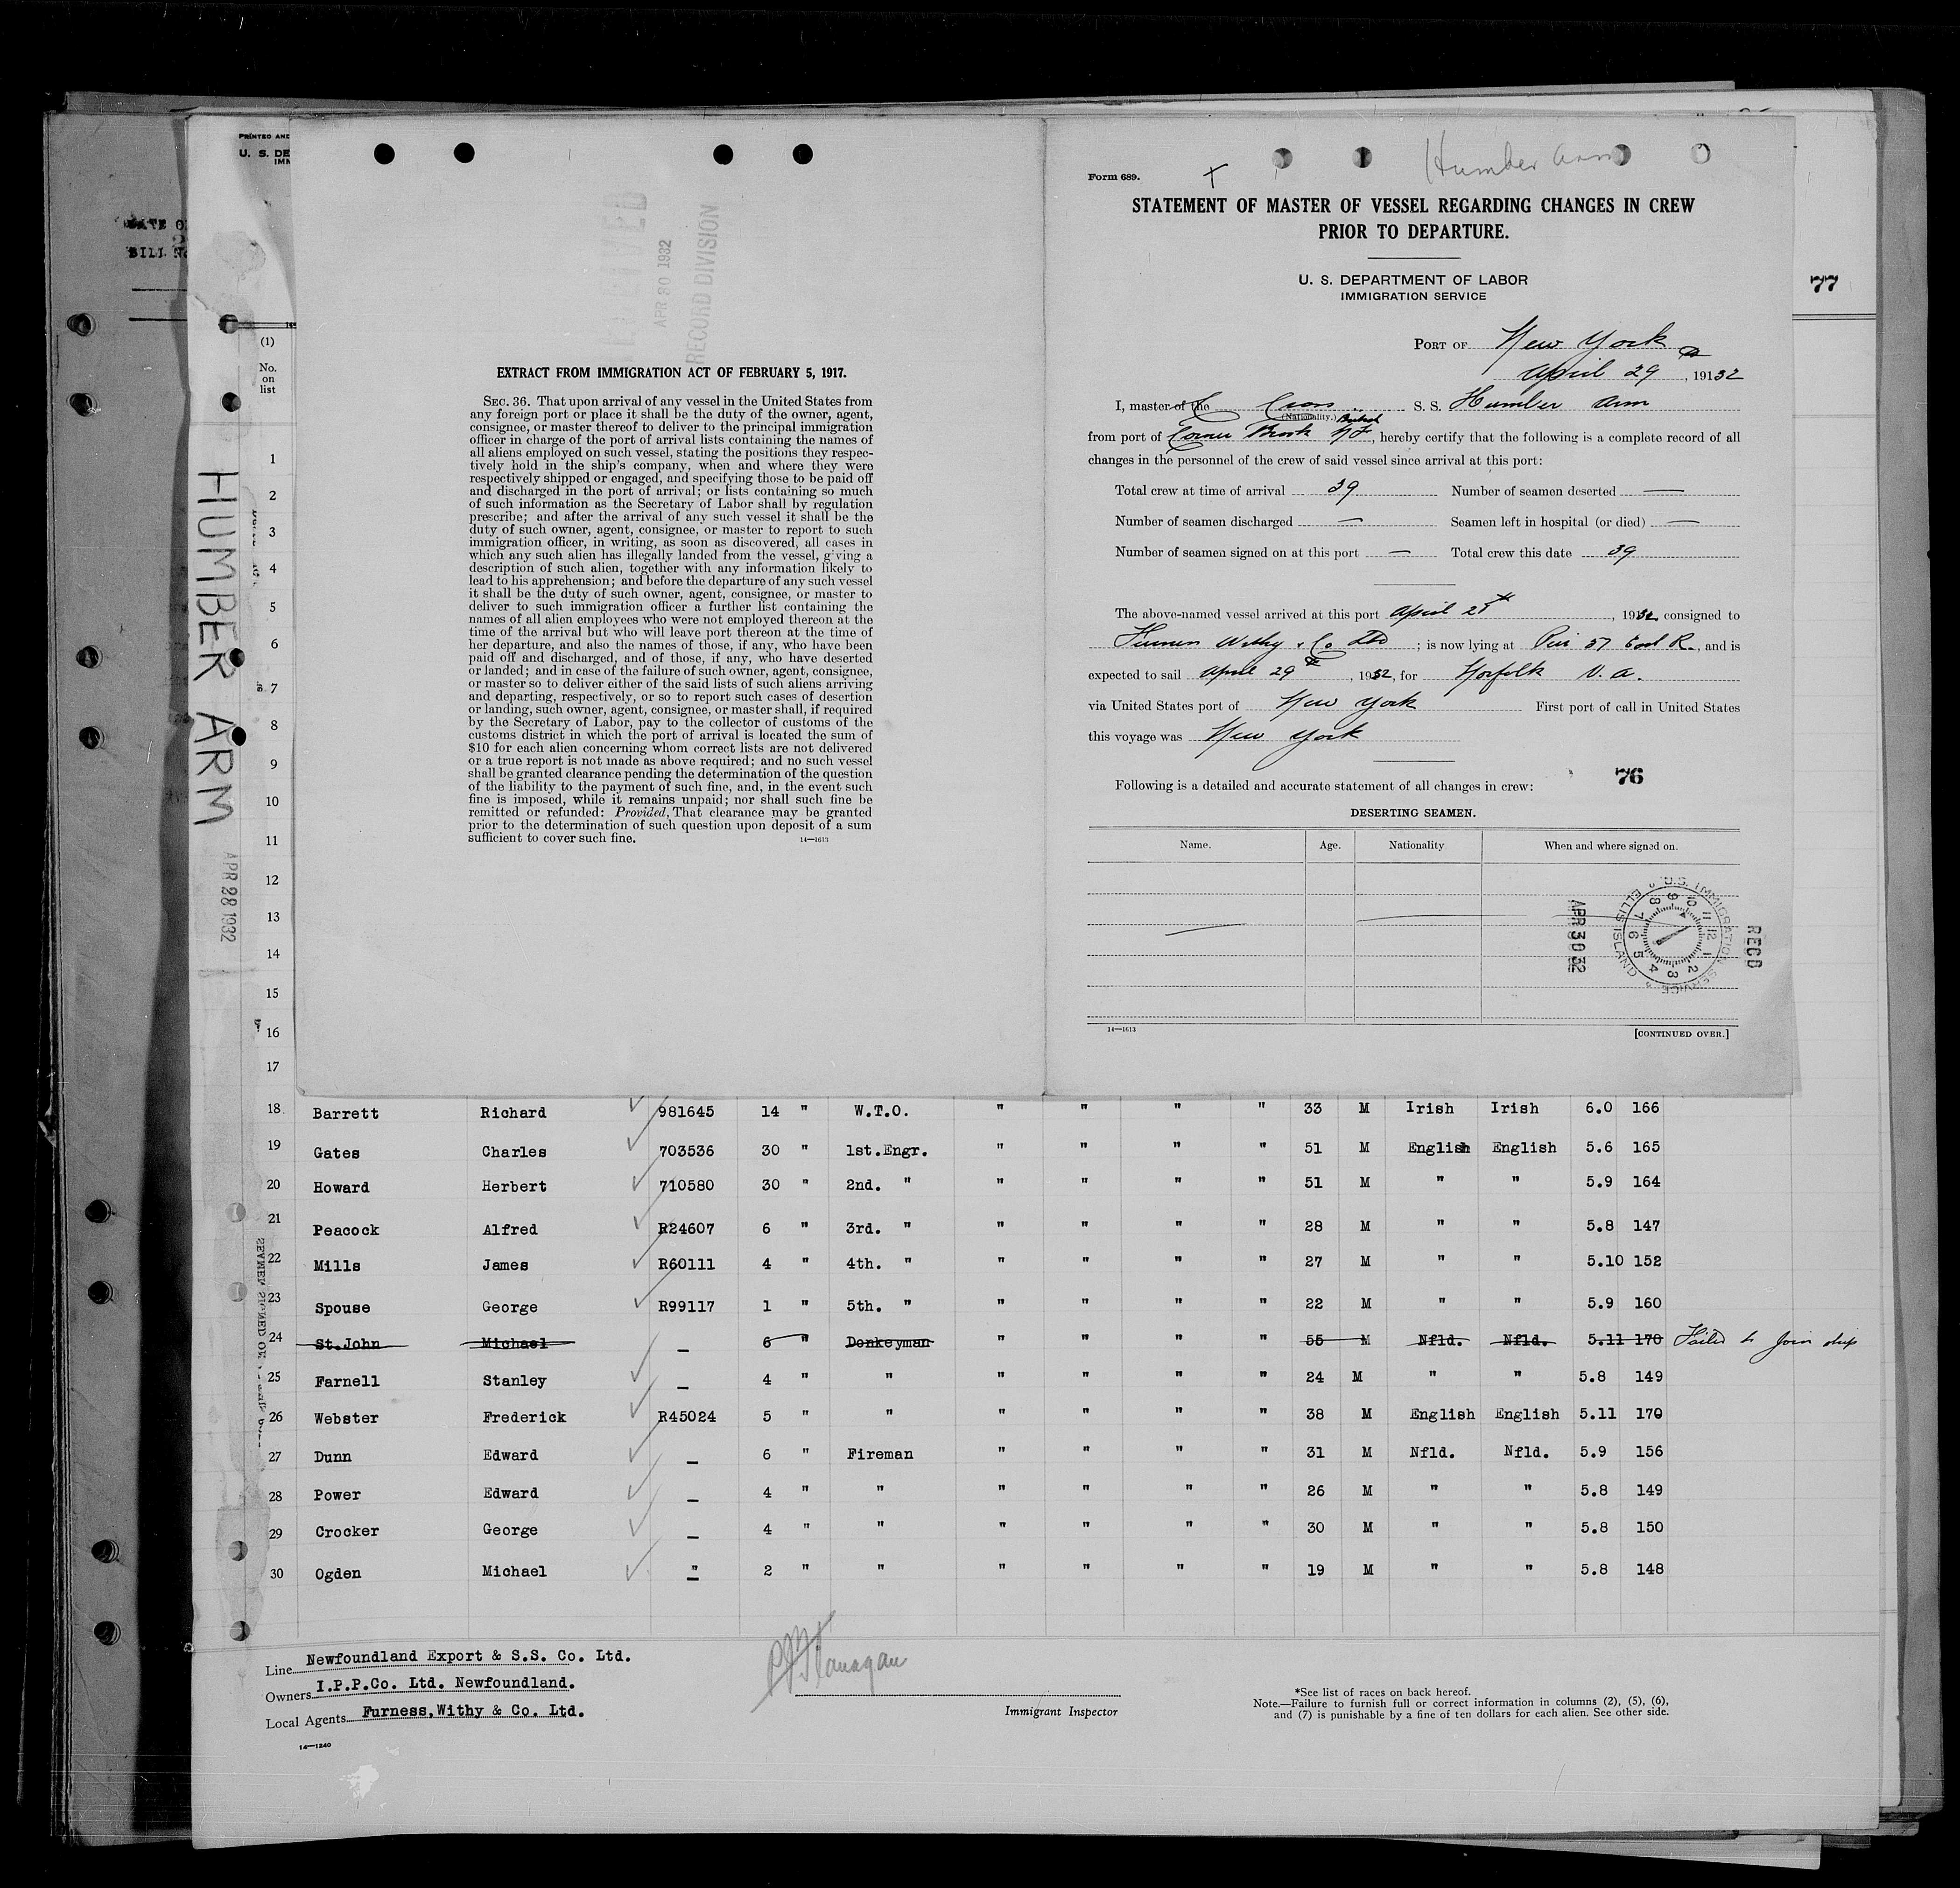 PRINTED AND
U. S. DE
IMM
BILL
HUMBER ARM
APR 28 1932
APR 30 1932
RECORD DIVISION
EXTRACT FROM IMMIGRATION ACT OF FEBRUARY 5, 1917.
SEC. 36. That upon arrival of any vessel in the United States from
any foreign port or place it shall be the duty of the owner, agent,
consignee, or master thereof to deliver to the principal immigration
officer in charge of the port of arrival lists containing the names of
all aliens employed on such vessel, stating the positions they respec-
tively hold in the ship's company, when and where they were
respectively shipped or engaged, and specifying those to be paid off
and discharged in the port of arrival; or lists containing so much
of such information as the Secretary of Labor shall by regulation
prescribe; and after the arrival of any such vessel it shall be the
duty of such owner, agent, consignee, or master to report to such
immigration officer, in writing, as soon as discovered, all cases in
which any such alien has illegally landed from the vessel, giving a
description of such alien, together with any information likely to
lead to his apprehension; and before the departure of any such vessel
it shall be the duty of such owner, agent, consignee, or master to
deliver to such immigration officer a further list containing the
names of all alien employees who were not employed thereon at the
time of the arrival but who will leave port thereon at the time of
her departure, and also the names of those, if any, who have been
paid off and discharged, and of those, if any, who have deserted
or landed; and in case of the failure of such owner, agent, consignee,
or master so to deliver either of the said lists of such aliens arriving
and departing, respectively, or so to report such cases of desertion
or landing, such owner, agent, consignee, or master shall, if required
by the Secretary of Labor, pay to the collector of customs of the
customs district in which the port of arrival is located the sum of
$10 for each alien concerning whom correct lists are not delivered
or a true report is not made as above required; and no such vessel
shall be granted clearance pending the determination of the question
of the liability to the payment of such fine, and, in the event such
fine is imposed, while it remains unpaid; nor shall such fine be
remitted or refunded: Provided, That clearance may be granted
prior to the determination of such question upon deposit of a sum
sufficient to cover such fine.
14—1613
Humber Arm
Form 689.
STATEMENT OF MASTER OF VESSEL REGARDING CHANGES IN CREW
PRIOR TO DEPARTURE.
U. S. DEPARTMENT OF LABOR
IMMIGRATION SERVICE
77
PORT OF New York
April 29, 19132
I, master of the Cross S. S. Humber Arm
(Nationality.) British
from port of Corner Brook NF, hereby certify that the following is a complete record of all
changes in the personnel of the crew of said vessel since arrival at this port:
Total crew at time of arrival 39 Number of seamen deserted —
Number of seamen discharged — Seamen left in hospital (or died) —
Number of seamen signed on at this port — Total crew this date 39
The above-named vessel arrived at this port April 28th, 1932 consigned to
Furness Withy & Co Ltd; is now lying at Pier 57 East R., and is
expected to sail April 29th, 1932, for Norfolk V. A.
via United States port of New York First port of call in United States
this voyage was New York
76
Following is a detailed and accurate statement of all changes in crew:
DESERTING SEAMEN.
Name. Age. Nationality When and where signed on.
RECD
U.S. IMMIGRATION SERVICE ELLIS ISLAND
APR 30 32
14—1613
[CONTINUED OVER.]
(1)
No.
on
list
1
2
3
4
5
6
7
8
9
10
11
12
13
14
15
16
17
18 Barrett Richard 981645 14 " W.T.O. " " " " 33 M Irish Irish 6.0 166
19 Gates Charles 703536 30 " 1st.Engr. " " " " 51 M English English 5.6 165
20 Howard Herbert 710580 30 " 2nd. " " " " " 51 M " " 5.9 164
21 Peacock Alfred R24607 6 " 3rd. " " " " " 28 M " " 5.8 147
22 Mills James R60111 4 " 4th. " " " " " 27 M " " 5.10 152
23 Spouse George R99117 1 " 5th. " " " " " 22 M " " 5.9 160
24 St.John Michael _ 6 " Donkeyman " " " " 55 M Nfld. Nfld. 5.11 170 Failed to join ship
25 Farnell Stanley _ 4 " " " " " " 24 M " " 5.8 149
26 Webster Frederick R45024 5 " " " " " " 38 M English English 5.11 170
27 Dunn Edward _ 6 " Fireman " " " " 31 M Nfld. Nfld. 5.9 156
28 Power Edward _ 4 " " " " " " 26 M " " 5.8 149
29 Crocker George _ 4 " " " " " " 30 M " " 5.8 150
30 Ogden Michael " 2 " " " " " " 19 M " " 5.8 148
Line Newfoundland Export & S.S. Co. Ltd.
Owners I.P.P.Co. Ltd. Newfoundland.
Local Agents Furness, Withy & Co. Ltd.
14—1240
Flanagan
Immigrant Inspector
*See list of races on back hereof.
Note.—Failure to furnish full or correct information in columns (2), (5), (6),
and (7) is punishable by a fine of ten dollars for each alien. See other side.